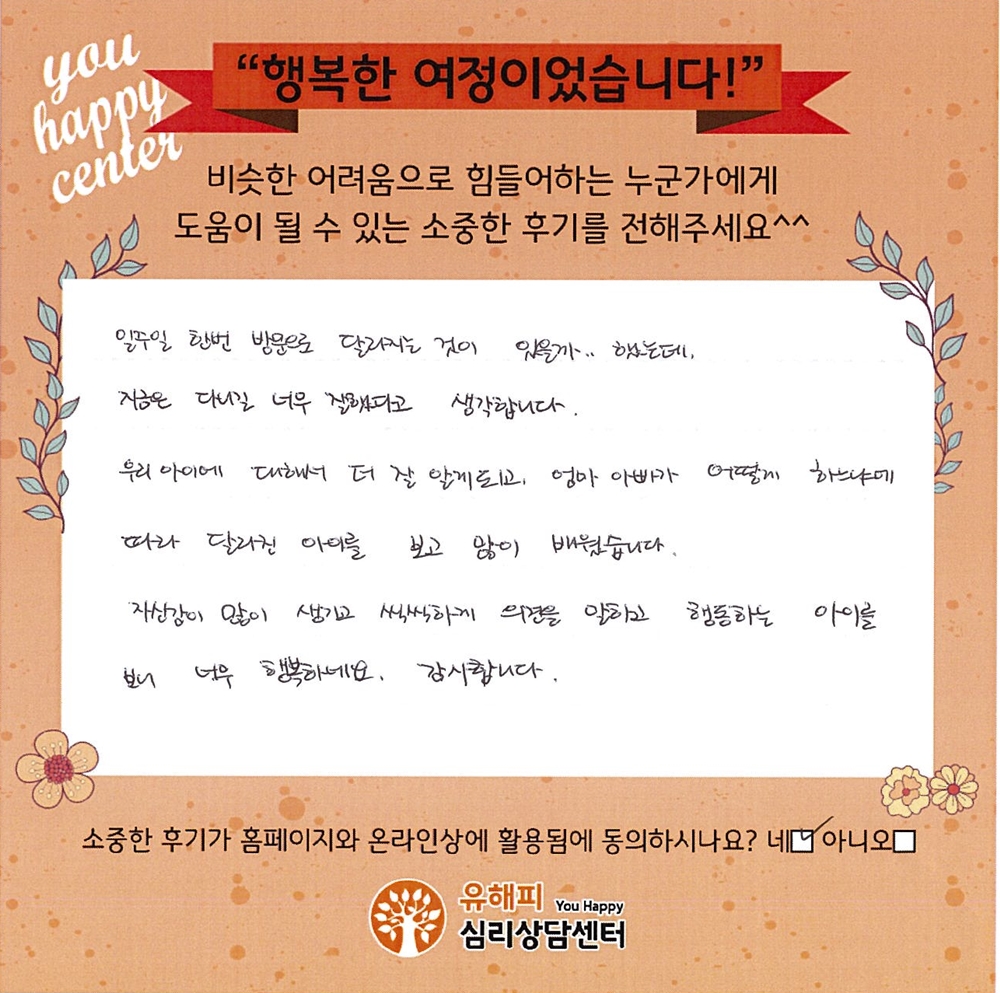 you
happy
center
“행복한 여정이었습니다!”
비슷한 어려움으로 힘들어하는 누군가에게
도움이 될 수 있는 소중한 후기를 전해주세요^^
일주일 한번 방문으로 달라지는 것이 있을까.. 했는데,
지금은 다니길 너무 잘했다고 생각합니다.
우리 아이에 대해서 더 잘 알게되고, 엄마 아빠가 어떻게 하느냐에
따라 달라진 아이를 보고 많이 배웠습니다.
자신감이 많이 생기고 씩씩하게 의견을 말하고 행동하는 아이를
보니 너무 행복하네요. 감사합니다.
소중한 후기가 홈페이지와 온라인상에 활용됨에 동의하시나요? 네 아니오
유해피 You Happy
심리상담센터